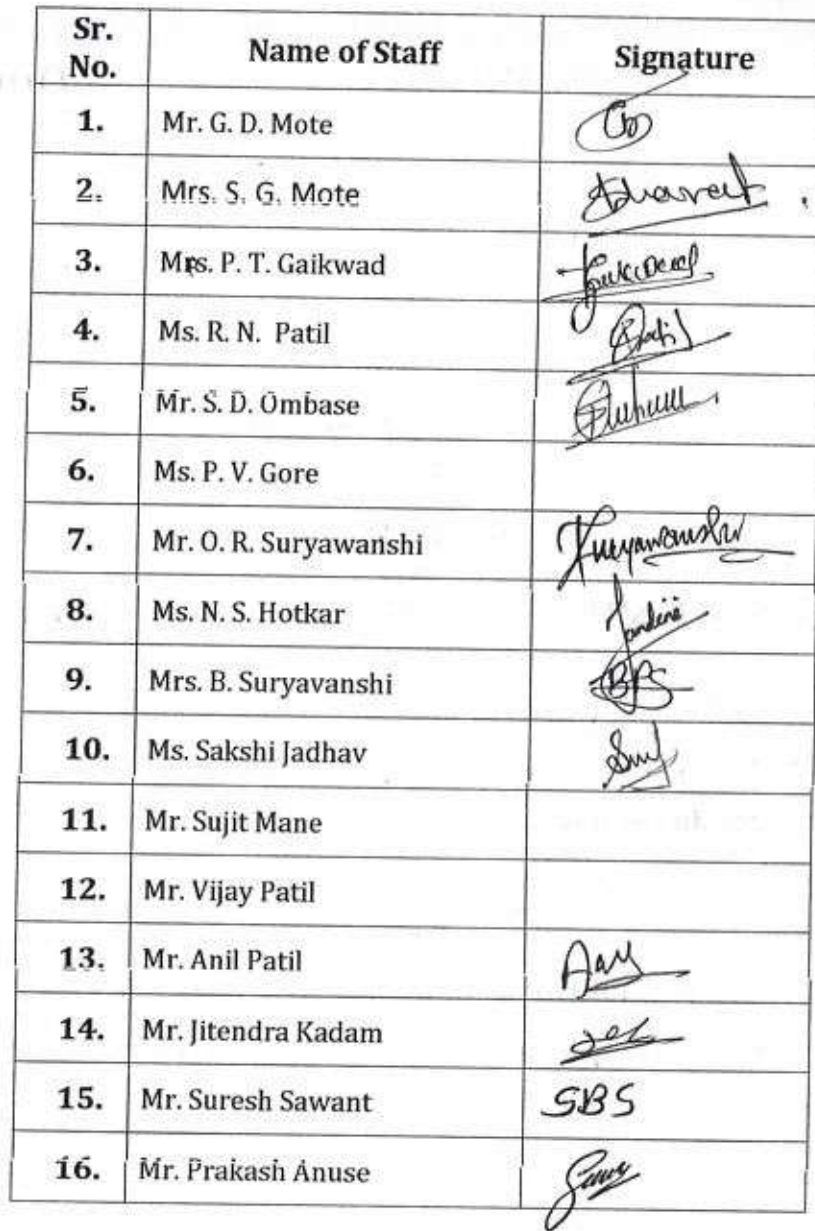 Sr. No. Name of Staff Signature
1. Mr. G. D. Mote
2. Mrs. S. G. Mote
3. Mrs. P. T. Gaikwad
4. Ms. R. N. Patil
5. Mr. S. D. Ombase
6. Ms. P. V. Gore
7. Mr. O. R. Suryawanshi Suryawanshi
8. Ms. N. S. Hotkar
9. Mrs. B. Suryavanshi BPS
10. Ms. Sakshi Jadhav
11. Mr. Sujit Mane
12. Mr. Vijay Patil
13. Mr. Anil Patil
14. Mr. Jitendra Kadam
15. Mr. Suresh Sawant SBS
16. Mr. Prakash Anuse